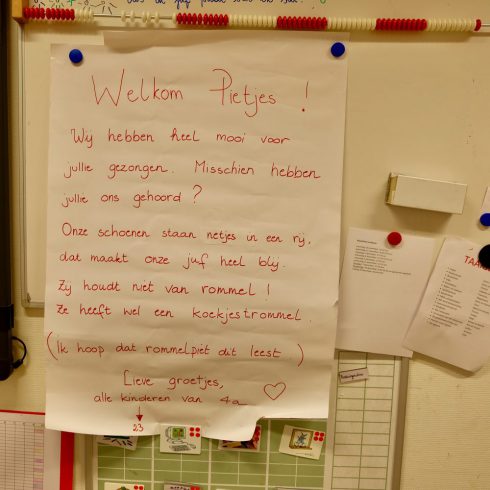 Welkom Pietjes !
Wij hebben heel mooi voor
jullie gezongen. Misschien hebben
jullie ons gehoord ?
Onze schoenen staan netjes in een rij,
dat maakt onze juf heel blij.
Zij houdt niet van rommel !
Ze heeft wel een koekjestrommel.
(Ik hoop dat rommelpiet dit leest )
Lieve groetjes,
alle kinderen van 4a
23